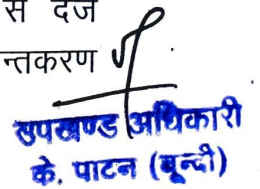 स दर्ज
न्तकरण
उपखण्ड अधिकारी
के. पाटन (बून्दी)